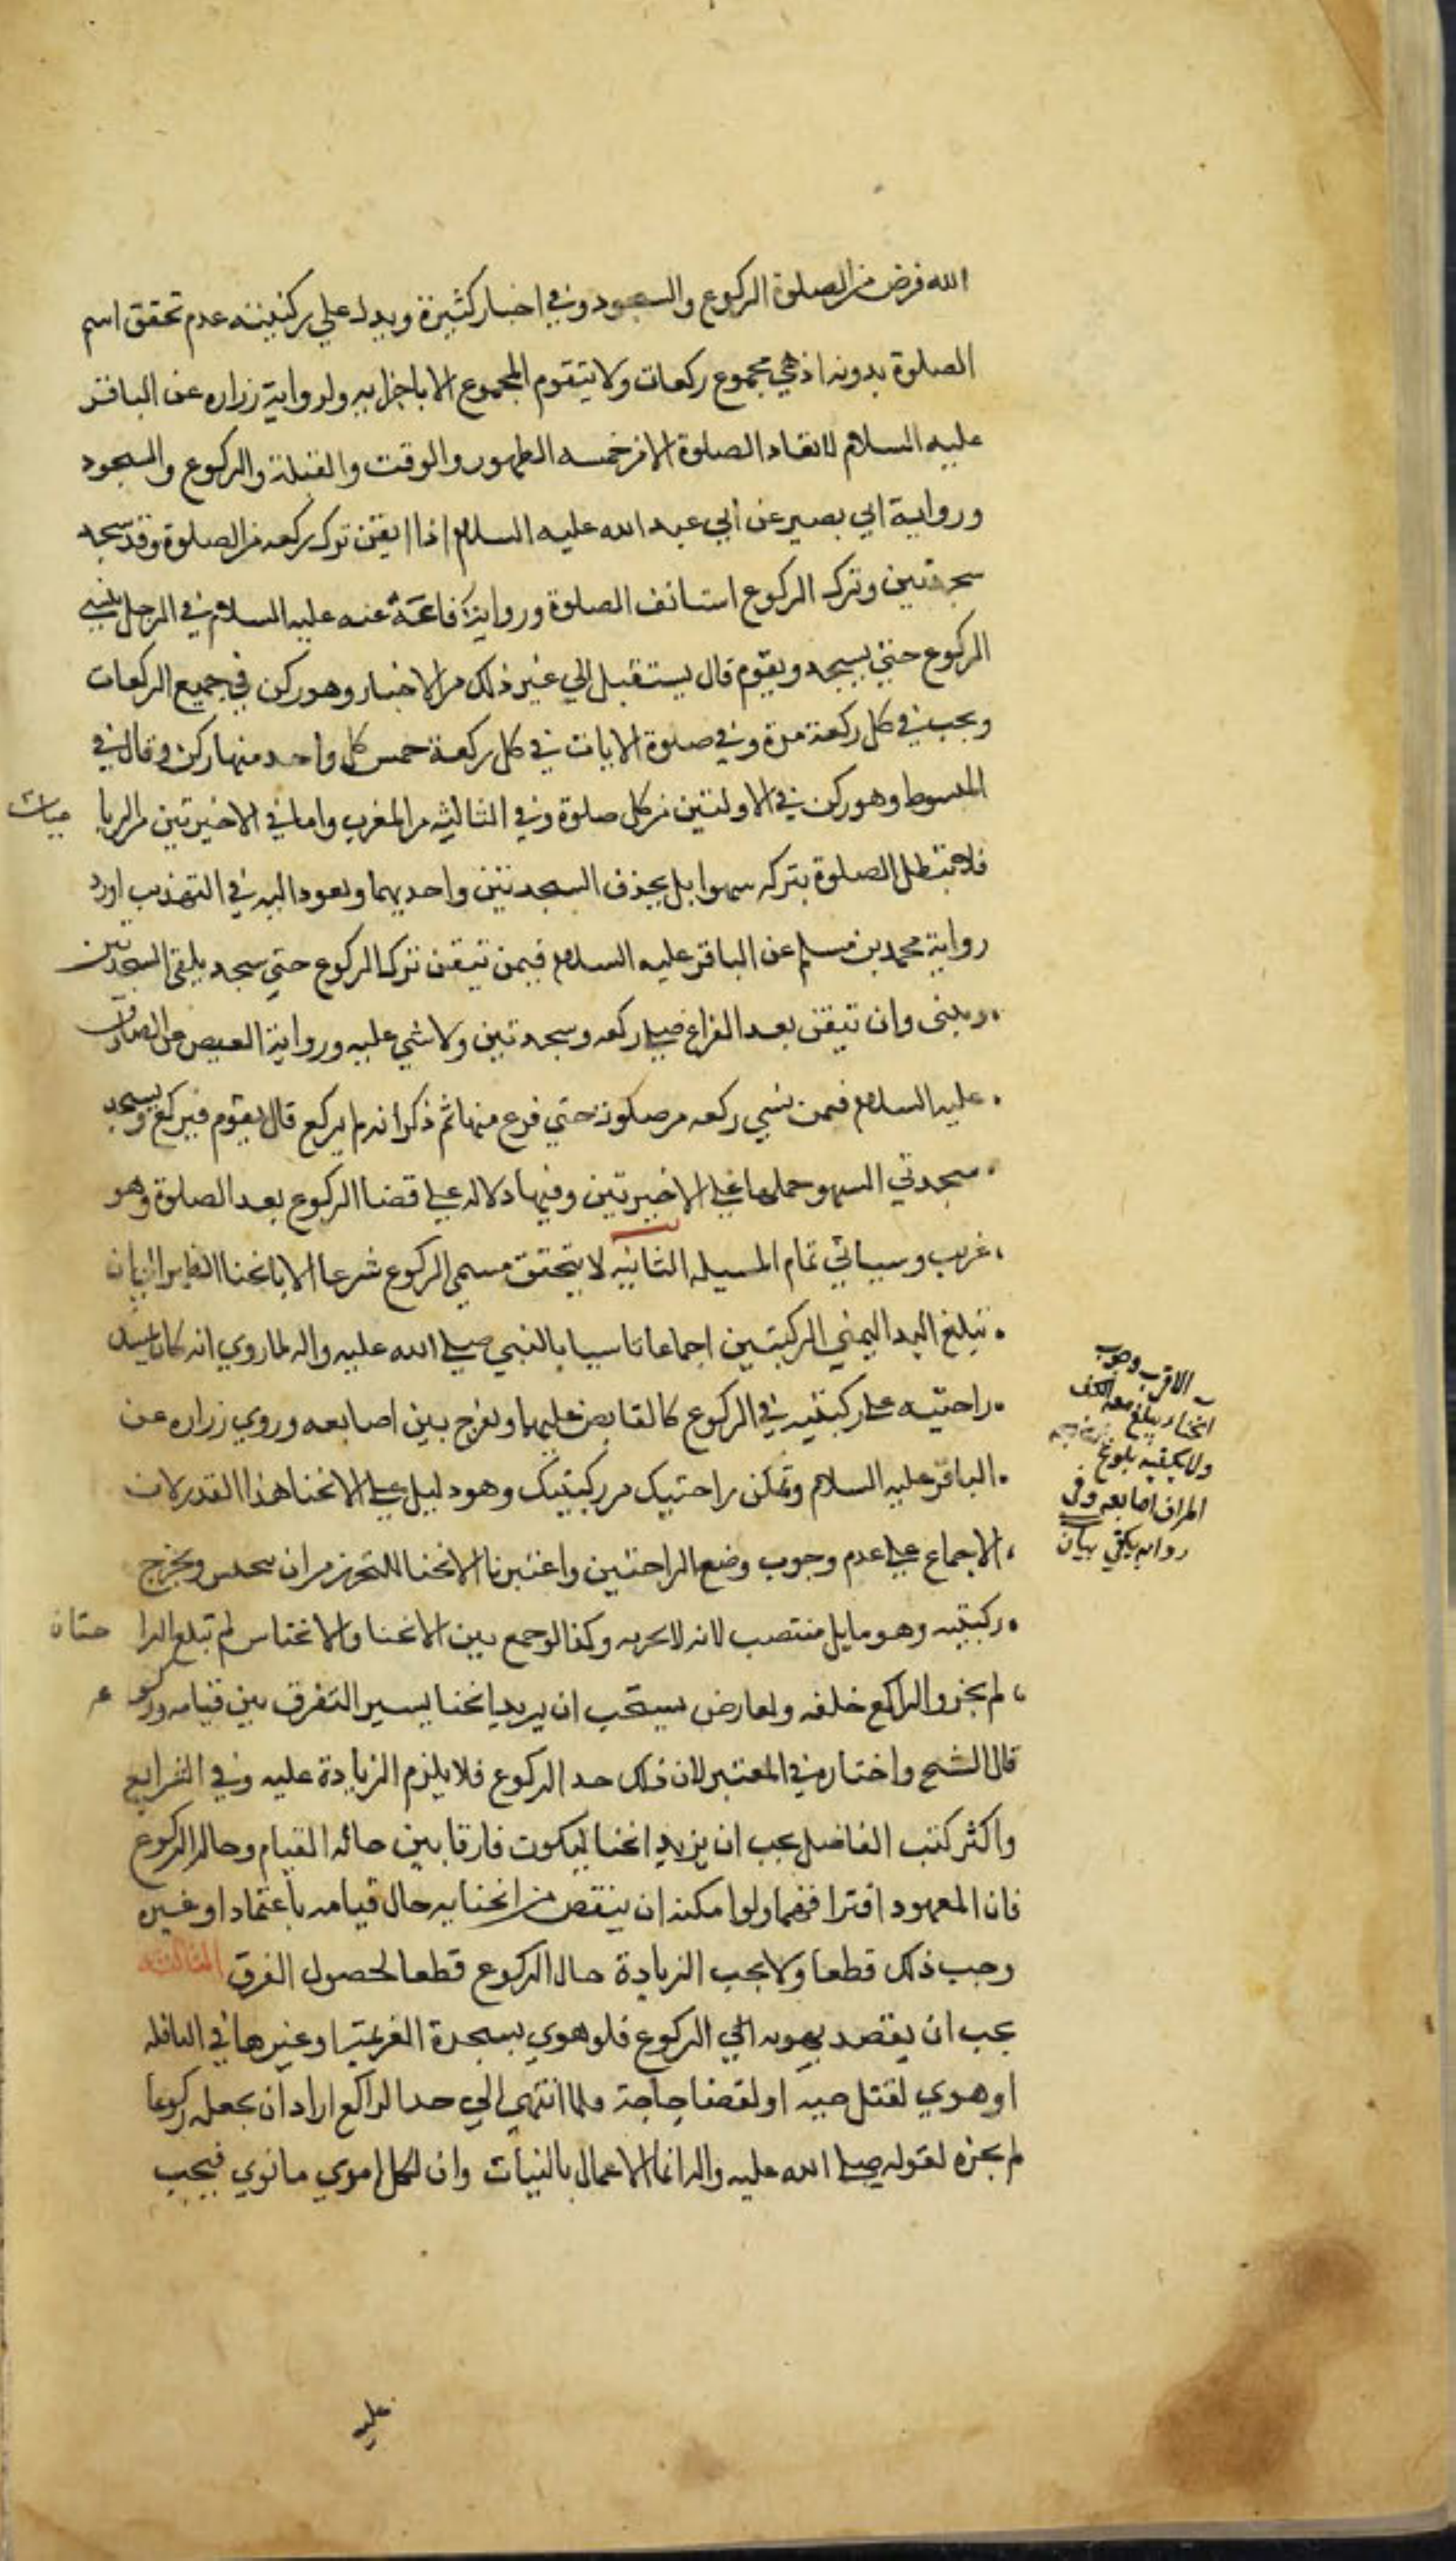 الله فرض من الصلوة الركوع والسجود وفي اخبار كثيرة ويدل علي ركنيته عدم تحقق اسم
الصلوة بدونه اذ هي مجموع ركعات ولا يتقوم المجموع الا باجزايه ولرواية زراره عن الباقر
عليه السلام لا تعاد الصلوة الا من خمسه الطهور والوقت والقبلة والركوع والسجود
ورواية ابي بصير عن ابي عبد الله عليه السلام اذا ايقن ترك ركعه من الصلوة وقد سجد
سجدتين وترك الركوع استانف الصلوة ورواية رفاعة عنه عليه السلام في الرجل ينسي
الركوع حتي يسجد ويقوم قال يستقبل الي غير ذلك من الاخبار وهو ركن في جميع الركعات
ويجب في كل ركعة مرة وفي صلوة الايات في كل ركعة خمس كل واحد منها ركن وقال في
المبسوط وهو ركن في الاولتين من كل صلوة وفي الثالثه من المغرب واما في الاخيرتين من الربا عيات
فلا تبطل الصلوة بتركه سهوا بل يحذف السجدتين واحديهما ويعود اليه في التهذيب اورد
رواية محمد بن مسلم عن الباقر عليه السلام فيمن تيقن ترك الركوع حتي سجد يلقي السجدتين
ويبني وان تيقن بعد الفراغ صلي ركعه وسجدتين ولا شي عليه ورواية العيص عن الصادق
عليه السلام فيمن نسي ركعه من صلوته حتي فرغ منها ثم ذكر انه لم يركع قال يقوم فيركع ويسجد
سجدتي السهو حملها علي الاخيرتين وفيها دلاله علي قضا الركوع بعد الصلوة وهو
غريب وسياتي تمام المسيله الثانيه لا يتحقق مسمي الركوع شرعا الا بانحنا الظهر الي ان
تبلغ اليد اليمني الركبتين اجماعا تاسيا بالنبي صلي الله عليه واله لما روي انه كان
راحتيه علي ركبتيه في الركوع كالقابض عليهما ويفرج بين اصابعه وروي زراره عن
الباقر عليه السلام وتمكن راحتيك من ركبتيك وهو دليل علي الانحنا هذا القدر لان
الاجماع علي عدم وجوب وضع الراحتين واعتبرنا الانحنا للتحرز من ان يخنس ويخرج
ركبتيه وهو مايل منتصب لانه لا يجزيه وكذا لو جمع بين الانحنا والانخناس لم تبلغ الرا حتان
لم يجز والراكع خلقه ولعارض يستحب ان يزيد انحنا يسير التفرق بين قيامه وركوعه
قال الشيخ واختاره في المعتبر لان ذلك حد الركوع فلا يلزم الزيادة عليه وفي الشرايع
واكثر كتب الفاضل يجب ان يزيد انحنا ليكون فارقا بين حاله القيام وحاله الركوع
فان المعهود افتراقهما ولو امكنه ان ينقص من انحنايه حال قيامه باعتماد او غيره
وجب ذلك قطعا ولا يجب الزيادة حال الركوع قطعا لحصول الفرق الثالثه
يجب ان يقصد بهويه الي الركوع فلو هوي بسجدة العزيمة او غيرها في النافله
او هوي لقتل حيه او لقضا حاجة ولما انتهي الي حد الراكع اراد ان يجعله ركوعا
لم يجزه لقوله صلي الله عليه واله انما الاعمال بالنيات وان لكل امري ما نوي فيجب
الاقرب وجوب
انحناء يبلغ معه الكف
ولا يكفيه بلوغ
اطراف اصابعه وفي
روايه يكفي بيان
عليه